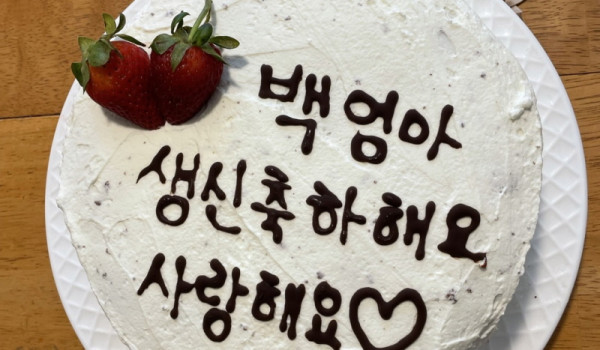 백엄아
생신축하해요
사랑해요♡